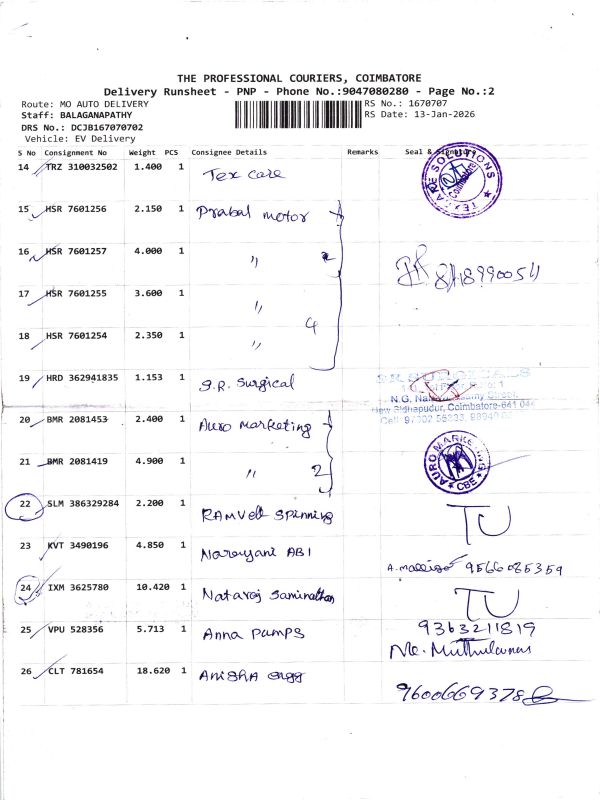 THE PROFESSIONAL COURIERS, COIMBATORE
Delivery Runsheet - PNP - Phone No.:9047080280 - Page No.:2
Route: MO AUTO DELIVERY RS No.: 1670707
Staff: BALAGANAPATHY RS Date: 13-Jan-2026
DRS No.: DCJB167070702
Vehicle: EV Delivery
S No Consignment No Weight PCS Consignee Details Remarks Seal & Signature
14 TRZ 310032502 1.400 1 Tex care TEX CARE SOLUTIONS Coimbatore
15 HSR 7601256 2.150 1 Prabal motor
16 HSR 7601257 4.000 1 "
17 HSR 7601255 3.600 1 "
4
18 HSR 7601254 2.350 1 "
19 HRD 362941835 1.153 1 S.R. Surgical SURGICALS
New Sidhapudur, Coimbatore-641 044
20 BMR 2081453 2.400 1 Auro marketing
21 BMR 2081419 4.900 1 " 2 AURO MARKETING CBE
22 SLM 386329284 2.200 1 RAMVell Spinning TU
23 KVT 3490196 4.850 1 Narayani ABI 9566085359
24 IXM 3625780 10.420 1 Nataraj Saminathan TU
25 VPU 528356 5.713 1 Anna pumps 9363211819
26 CLT 781654 18.620 1 Anisha engg 9600669378